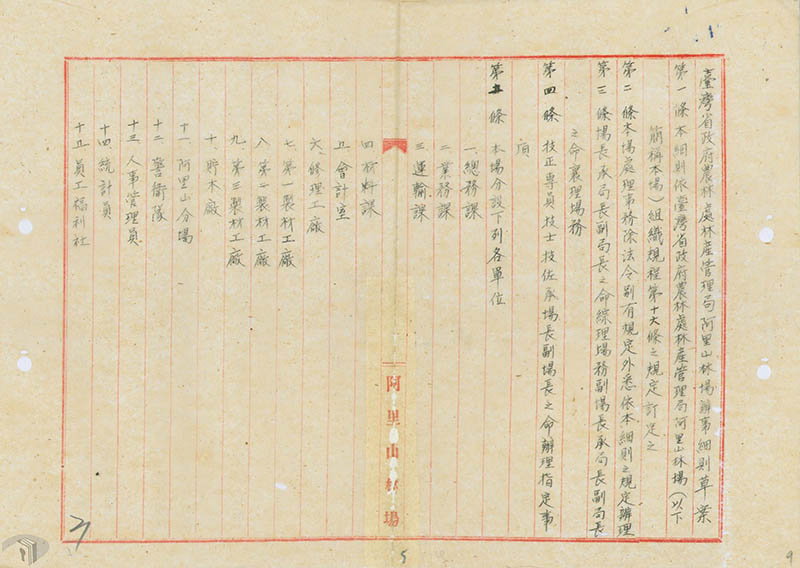 臺灣省政府農林處林產管理局阿里山林場辦事細則草案
第一條本細則依臺灣省政府農林處林產管理局阿里山林場(以下
簡稱本場)組織規程第十六條之規定訂定之
第二條本場處理事務除法令別有規定外悉依本細則之規定辦理
第三條場長承局長副局長之命綜理場務副場長承局長副局長
之命襄理場務
第四條 技正專員技士技佐承場長副場長之命辦理指定事
項
第五條 本場分設下列各單位
一、總務課
二、業務課
三、運輸課
阿里山林場
四、材料課
五、會計室
六、修理工廠
七、第一製材工廠
八、第二製材工廠
九、第三製材工廠
十、貯木廠
十一、阿里山分場
十二、警衛隊
十三、人事管理員
十四、統計員
十五、員工福利社
5
9